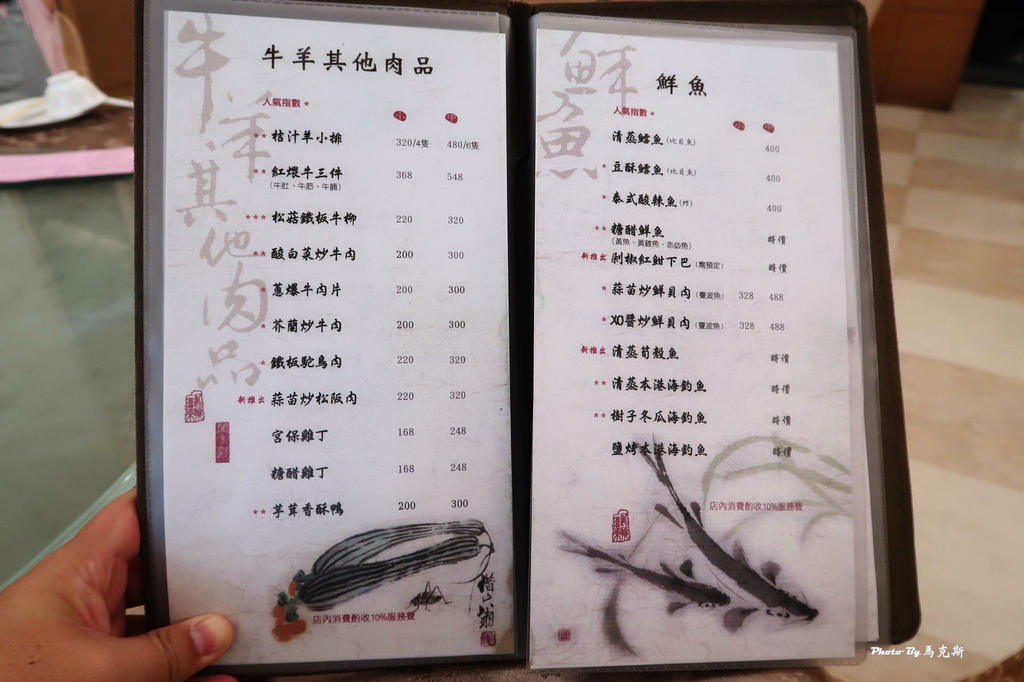 牛羊其他肉品
牛羊其他肉品
人氣指數*
小 中
** 桔汁羊小排 320/4隻 480/6隻
** 紅煨牛三件 368 548
(牛肚、牛筋、牛腩)
*** 松菇鐵板牛柳 220 320
** 酸白菜炒牛肉 200 300
* 蔥爆牛肉片 200 300
* 芥蘭炒牛肉 200 300
* 鐵板駝鳥肉 220 320
新推出 蒜苗炒松阪肉 220 320
宮保雞丁 168 248
糖醋雞丁 168 248
** 芋茸香酥鴨 200 300
店內消費酌收10%服務費
借山翁
鮮魚
鮮魚
人氣指數*
小 中
清蒸鱈魚(比目魚) 400
* 豆酥鱈魚(比目魚) 400
* 泰式酸辣魚(炸) 400
** 糖醋鮮魚 時價
(黃魚、黃雞魚、赤鯮魚)
新推出 剁椒紅魽下巴(需預定) 時價
* 蒜苗炒鮮貝肉(曼波魚) 328 488
* XO醬炒鮮貝肉(曼波魚) 328 488
新推出 清蒸筍殼魚 時價
** 清蒸本港海釣魚 時價
** 樹子冬瓜海釣魚 時價
鹽烤本港海釣魚 時價
店內消費酌收10%服務費
Photo By 馬克斯